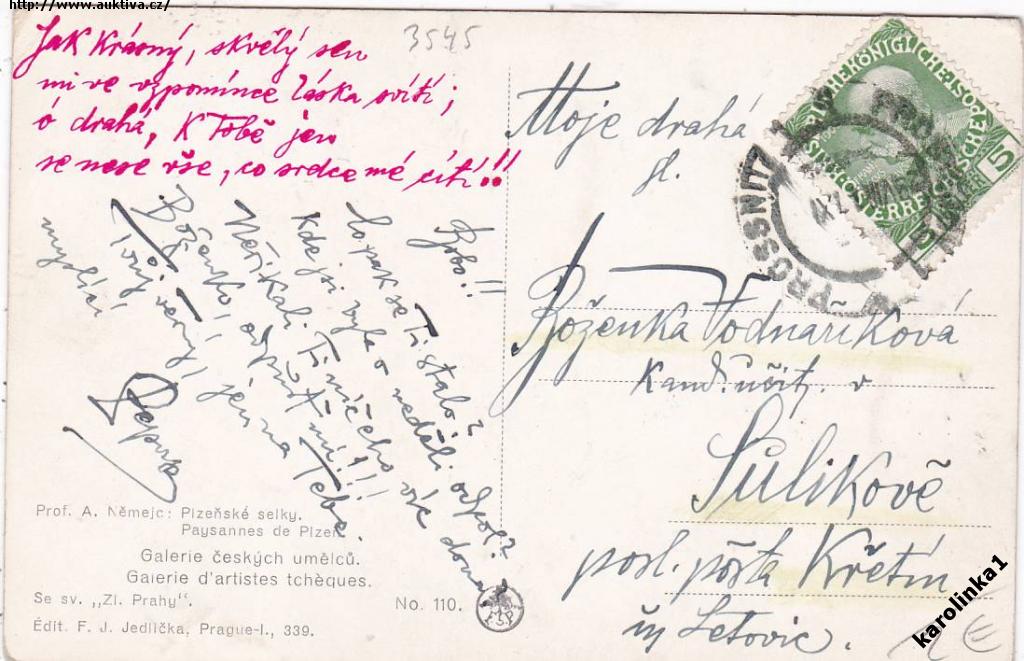 http://www.auktiva.cz/
3545
Jak krásný, skvělý sen
mi ve vzpomínce láska svítí;
ó drahá, k Tobě jen
se nese vše, co srdce mé cítí!!
Copak se Ti stalo?
Kde jsi byla v neděli odpol?
Neříkali Ti ničeho víc doma?
Boženko, odpusť mi!!!
Tvůj věrný, jen na Tebe
myslící
Moje drahá
sl.
Boženka Vodnaříková
kand. učit. v
Sulikově
posl. pošta Křetín
Letovic.
PROSSNITZ
5
Prof. A. Němejc: Plzeňské selky.
Paysannes de Plzeň.
Galerie českých umělců.
Galerie d'artistes tchèques.
Se sv. „Zl. Prahy".
No. 110.
Édit. F. J. Jedlička, Prague-I., 339.
karolinka1